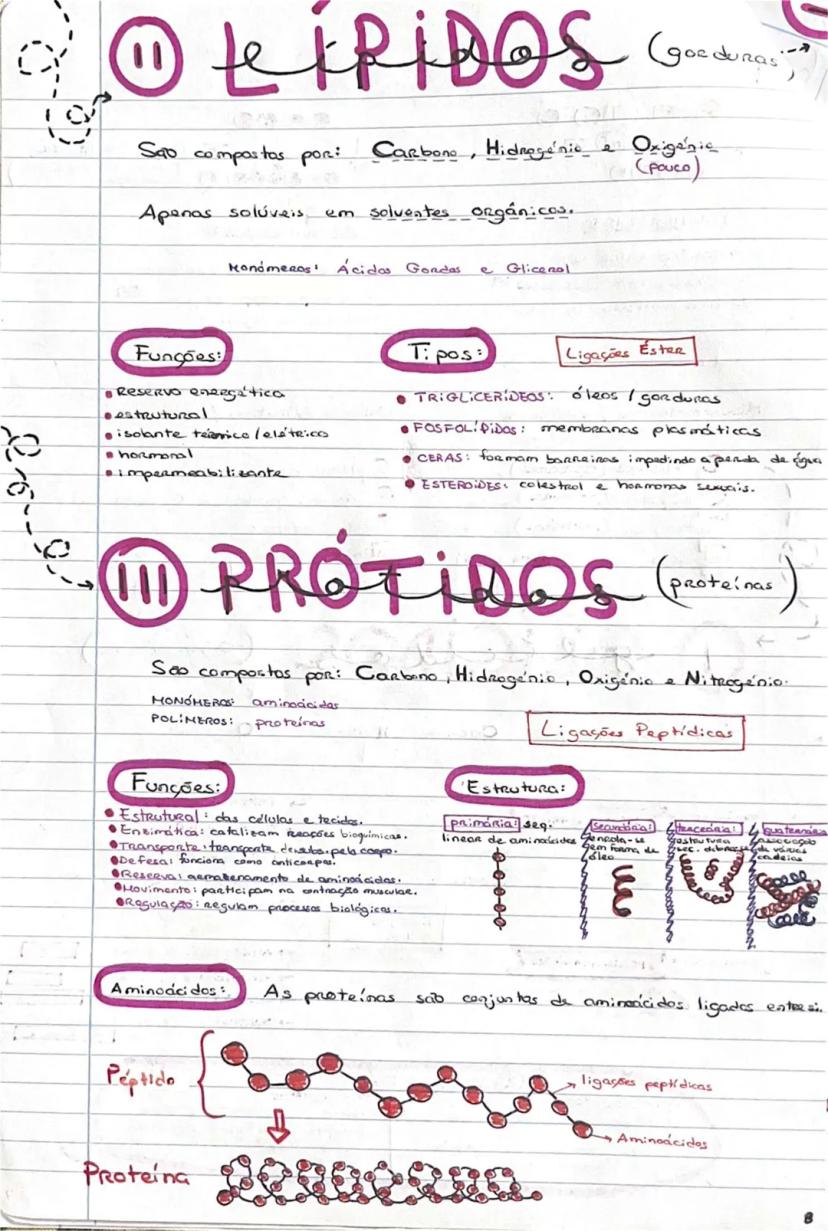 II LÍPIDOS lípidos (gorduras)
São compostos por: Carbono, Hidrogénio e Oxigénio
(pouco)
Apenas solúveis em solventes orgânicos.
Monómeros: Ácidos Gordos e Glicerol
Funções:
• Reserva energética
• estrutural
• isolante térmico/elétrico
• hormonal
• impermeabilizante
Tipos:
Ligações Éster
• TRIGLICERÍDEOS: óleos / gorduras
• FOSFOLÍPIDOS: membranas plasmáticas
• CERAS: formam barreiras impedindo a perda de água
• ESTEROIDES: colestrol e hormonas sexuais.
III PRÓTIDOS prótidos (proteínas)
São compostos por: Carbono, Hidrogénio, Oxigénio e Nitrogénio.
MONÓMEROS: aminoácidos
POLÍMEROS: proteínas
Ligações Peptídicas
Funções:
• Estrutural: das células e tecidos.
• Enzimática: catalizam reações bioquímicas.
• Transporte: transporte pelo corpo.
• Defesa: funciona como anticorpos.
• Reserva: armazenamento de aminoácidos.
• Movimento: participam na contração muscular.
• Regulação: regulam processos biológicos.
Estrutura:
primária: seq.
linear de aminoácidos
secundária:
enrola-se
em forma de
terceária:
estrutura
sec.
quaternária
associação
de várias
cadeias
Aminoácidos: As proteínas são conjuntos de aminoácidos ligados entre si.
Péptido
ligações peptídicas
Aminoácidos
Proteína
8